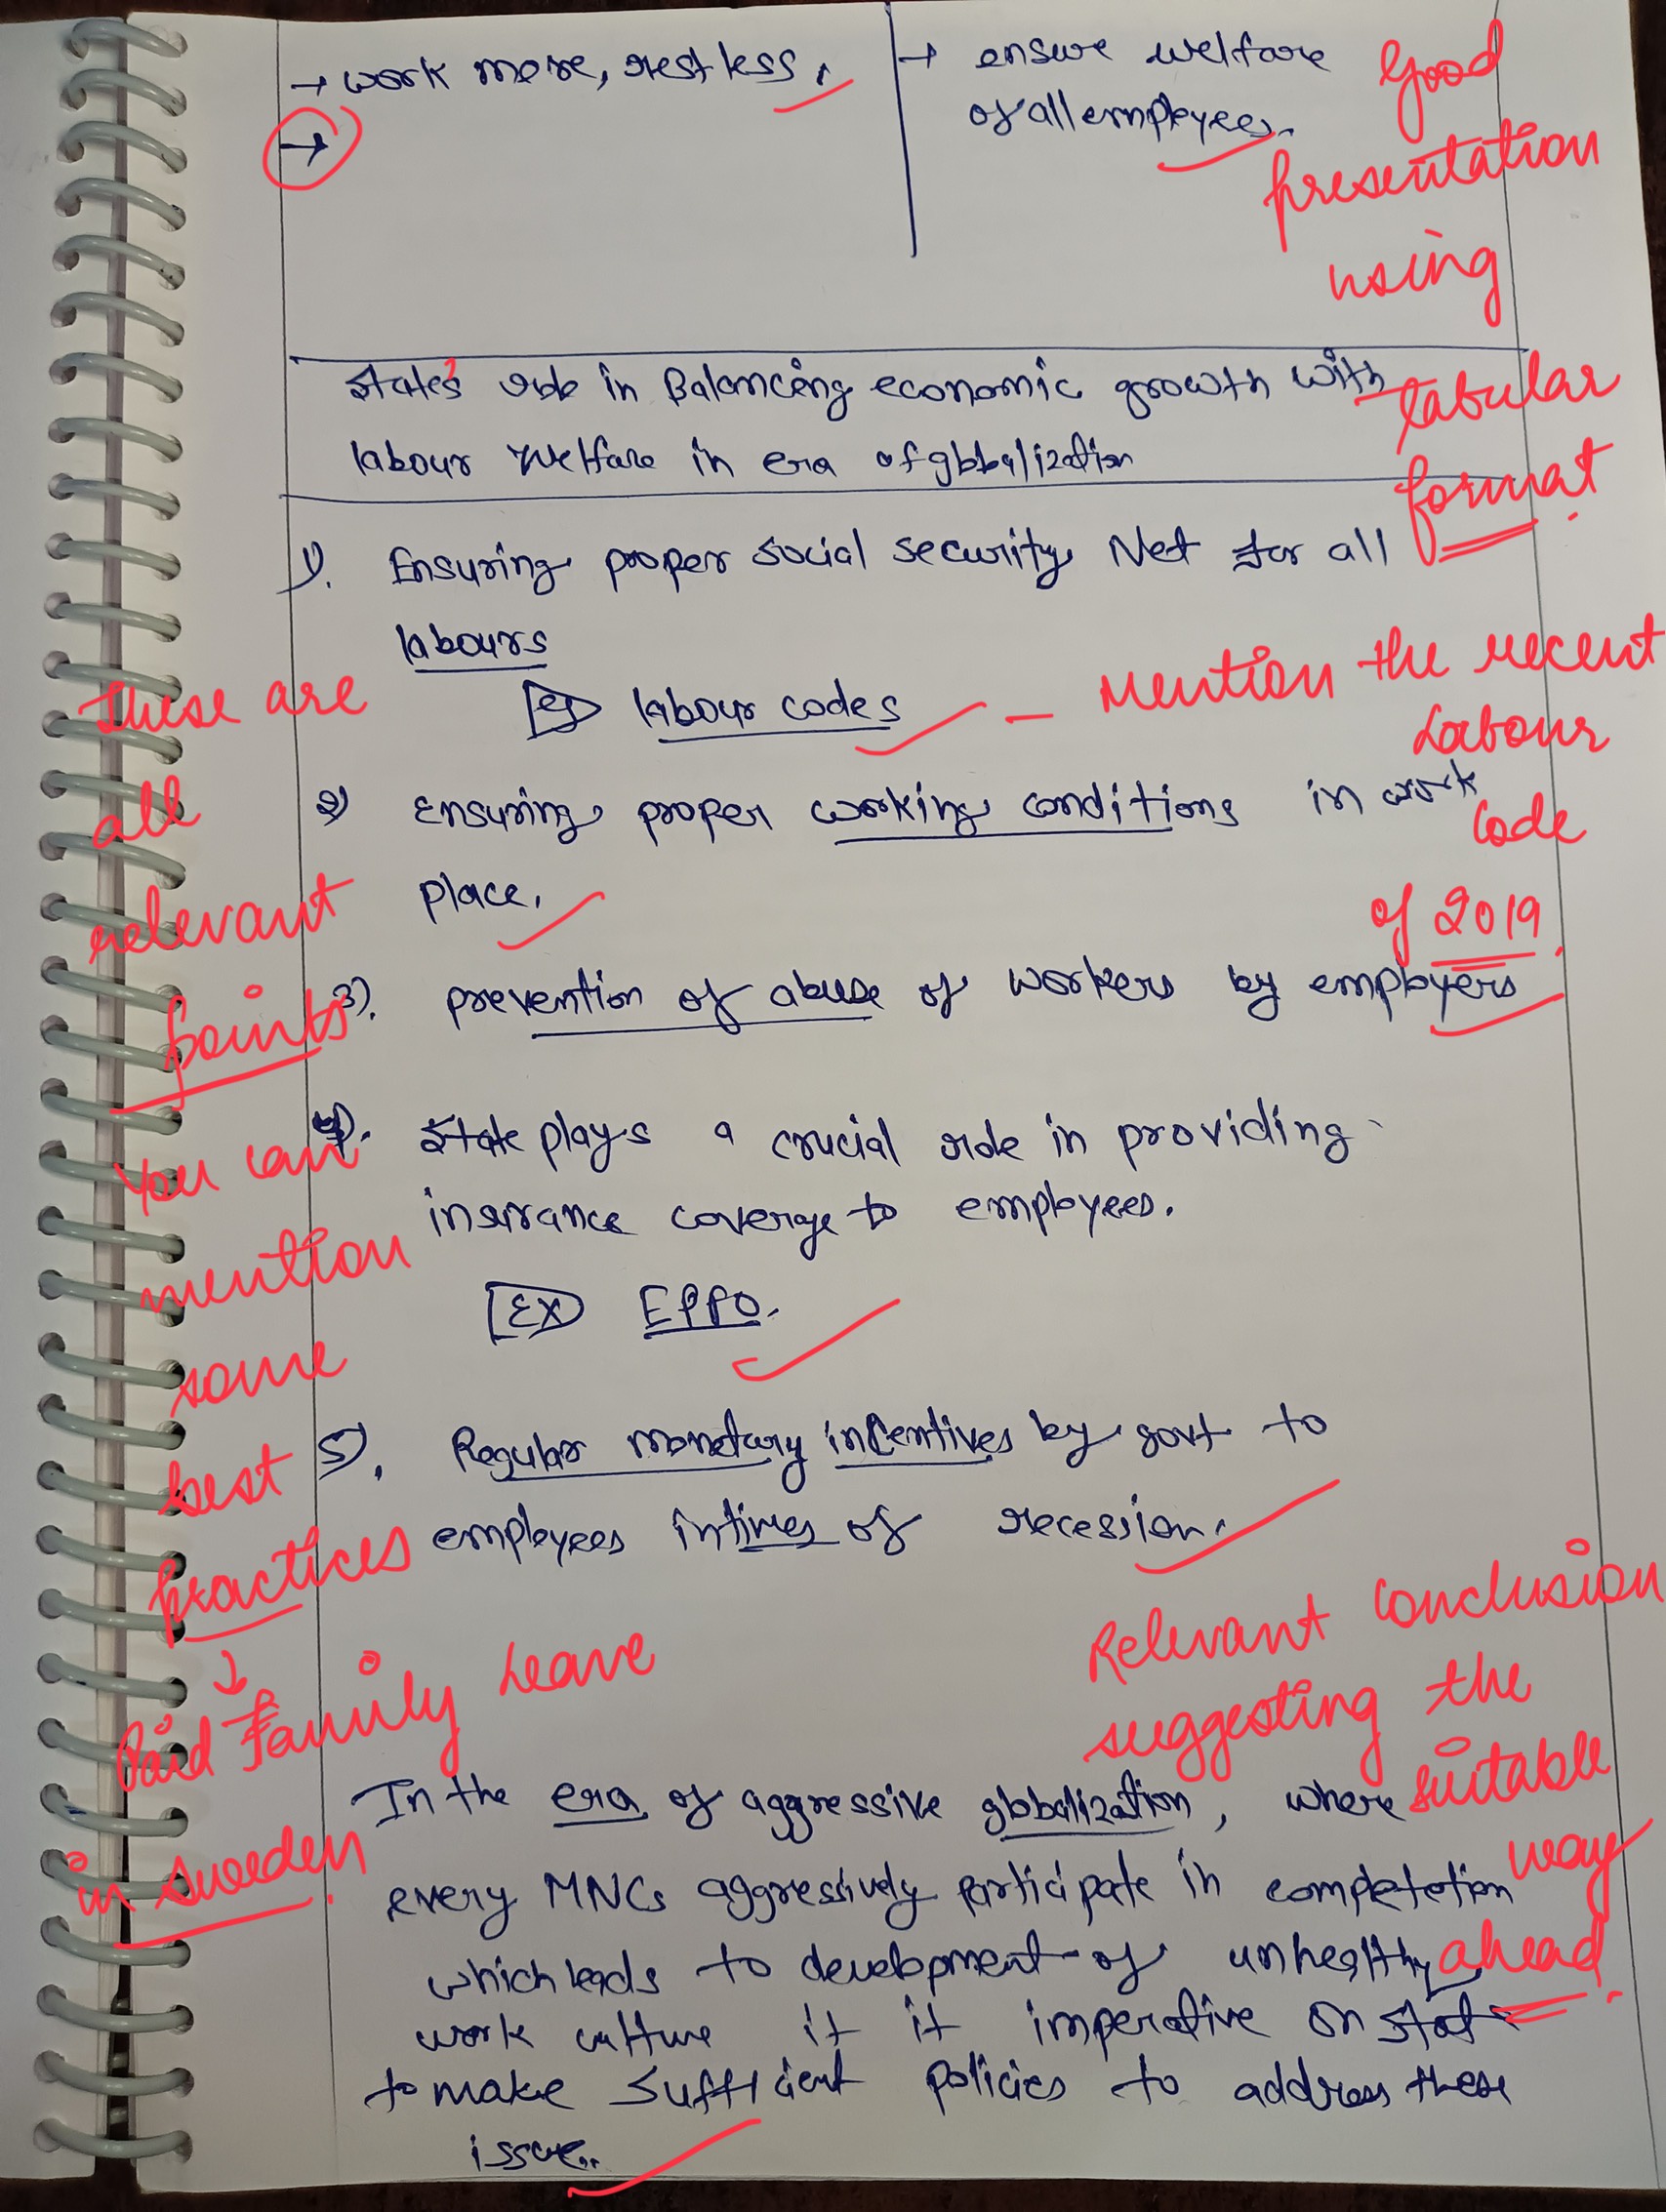 → work more, rest less,
→
→ ensure welfare
of all employees.
Good
presentation
using
tabular
format.
State's role in Balancing economic growth with
labour welfare in era of globalization
1). Ensuring proper social security Net for all
labours
eg labour codes
– Mention the recent
Labour
code
of 2019.
2) Ensuring proper working conditions in work
place.
3). prevention of abuse of workers by employers
4). State plays a crucial role in providing
insurance coverage to employees.
EX EPPO.
5). Regular monetary incentives by govt to
employees in times of recession.
These are
all
relevant
points
You can
mention
some
best
practices
↓
Paid Family Leave
in Sweden.
Relevant conclusion
suggesting the
suitable
way
ahead.
In the era of aggressive globalization, where
every MNCs aggressively participate in competetion
which leads to development of unhealthy
work culture it it imperative on state
to make sufficient policies to address these
issue..